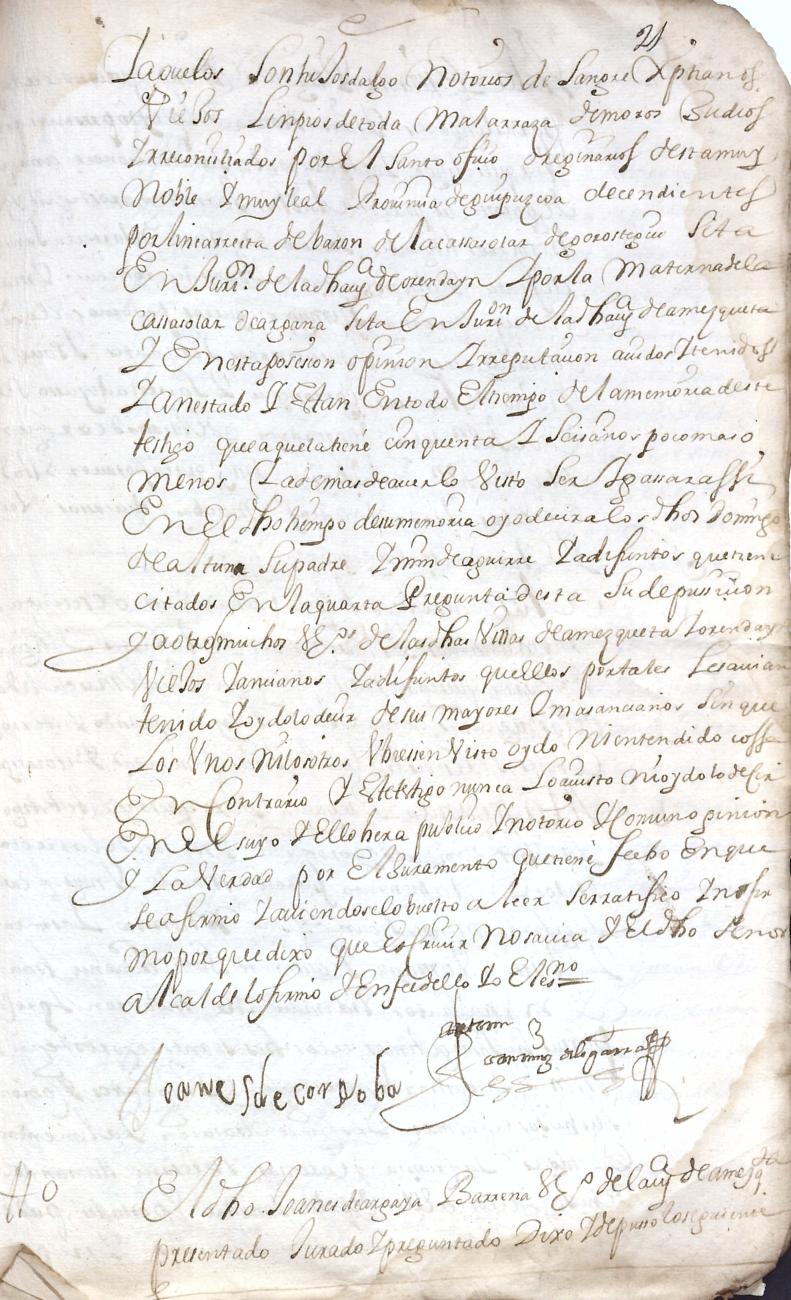 21
Y aquellos son hijosdalgo notorios de sangre Xptianos
Viejos Linpios de toda Mala rraza de moros Judios
Y rreconciliados por El santo ofiçio originarios desta muy
Noble Y muy leal Prouinçia de guipuzcoa decendientes
por linea rrecta de baron de la cassa solar de gorostegui sita
En Juriон de la dha uª de orendayn Y por la Materna de la
cassa solar de argana sita En Jurion de la dha uª de amezqueta
Y En esta posesion opinion Y rreputaçion auidos Y tenidos
Y an estado Y Estan En todo El tiempo de la memoria deste
testigo que aquel a tiene cinquenta Y seis años poco mas o
menos Y ademas de auerlo Visto ser Y passar assi
En El dho tiempo de su memoria oyo decir a los dhos Domingo
de altuna su padre Y min de aguirre Ya difuntos que tiene
citados En la quarta Pregunta desta su depussiçion
y a otros muchos Vºs de las dhas Villas de amezqueta Y orendayn
Viejos Y ançianos Ya difuntos quellos por tales Les auian
tenido Y oydolo deçir de sus mayores Y mas ancianos sin que
Los Vnos ni los otros Vbiessen Visto oydo ni entendido cossa
En Contrario Y Este testigo nunca Lo a visto ni oydolo deçir
En El suyo Y Ello hera publico Y notorio Y Comun opinion
y La Verdad por El Juramento que tiene fecho En que
se afirmo Y auiendoselo buelto a leer se rratifico Y no fir
mo porque dixo que Escriuir No sauia Y El dho señor
alcalde lo firmo Y En fee dello Yo El esno
Joanes de cordoba
ante mi
Ttº
El dho Joanes de argaya Barrena Vº de la uª de amezqta
presentado Jurado Y preguntado Dixo Y depusso lo seguiente